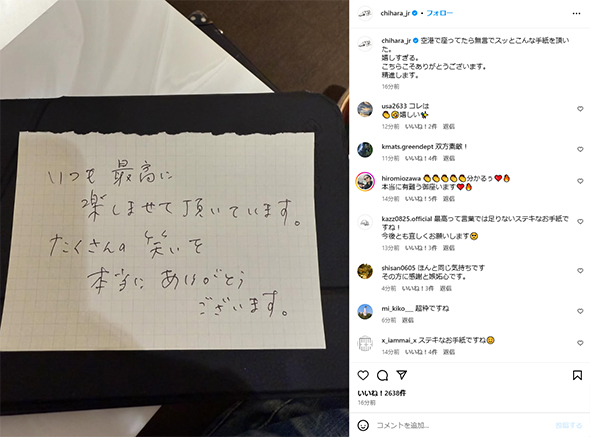 いつも最高に
楽しませて頂いています。
たくさんの笑いを
本当にありがとう
ございます。
chihara_jr • フォロー
chihara_jr 空港で座ってたら無言でスッとこんな手紙を頂い
た。
嬉しすぎる。
こちらこそありがとうございます。
精進します。
16分前
usa2633 コレは
👏🥹嬉しい✨
12分前 いいね！2件 返信
kmats.greendept 双方素敵！
11分前 いいね！5件 返信
hiromiozawa 👏👏👏👏👏分かるぅ❤️🔥
本当に有難う御座います❤️🔥
14分前 いいね！4件 返信
kazz0825.official 最高って言葉では足りないステキなお手紙で
すね！
今後とも宜しくお願いします😌
13分前 いいね！3件 返信
shisan0605 ほんと同じ気持ちです
その方に感謝と嫉妬心です。
4分前 いいね！3件 返信
mi_kiko__ 超粋ですね
6分前 返信
x_iammai_x ステキなお手紙ですね😊
14分前 いいね！4件 返信
いいね！2638件
16分前
コメントを追加...
投稿する